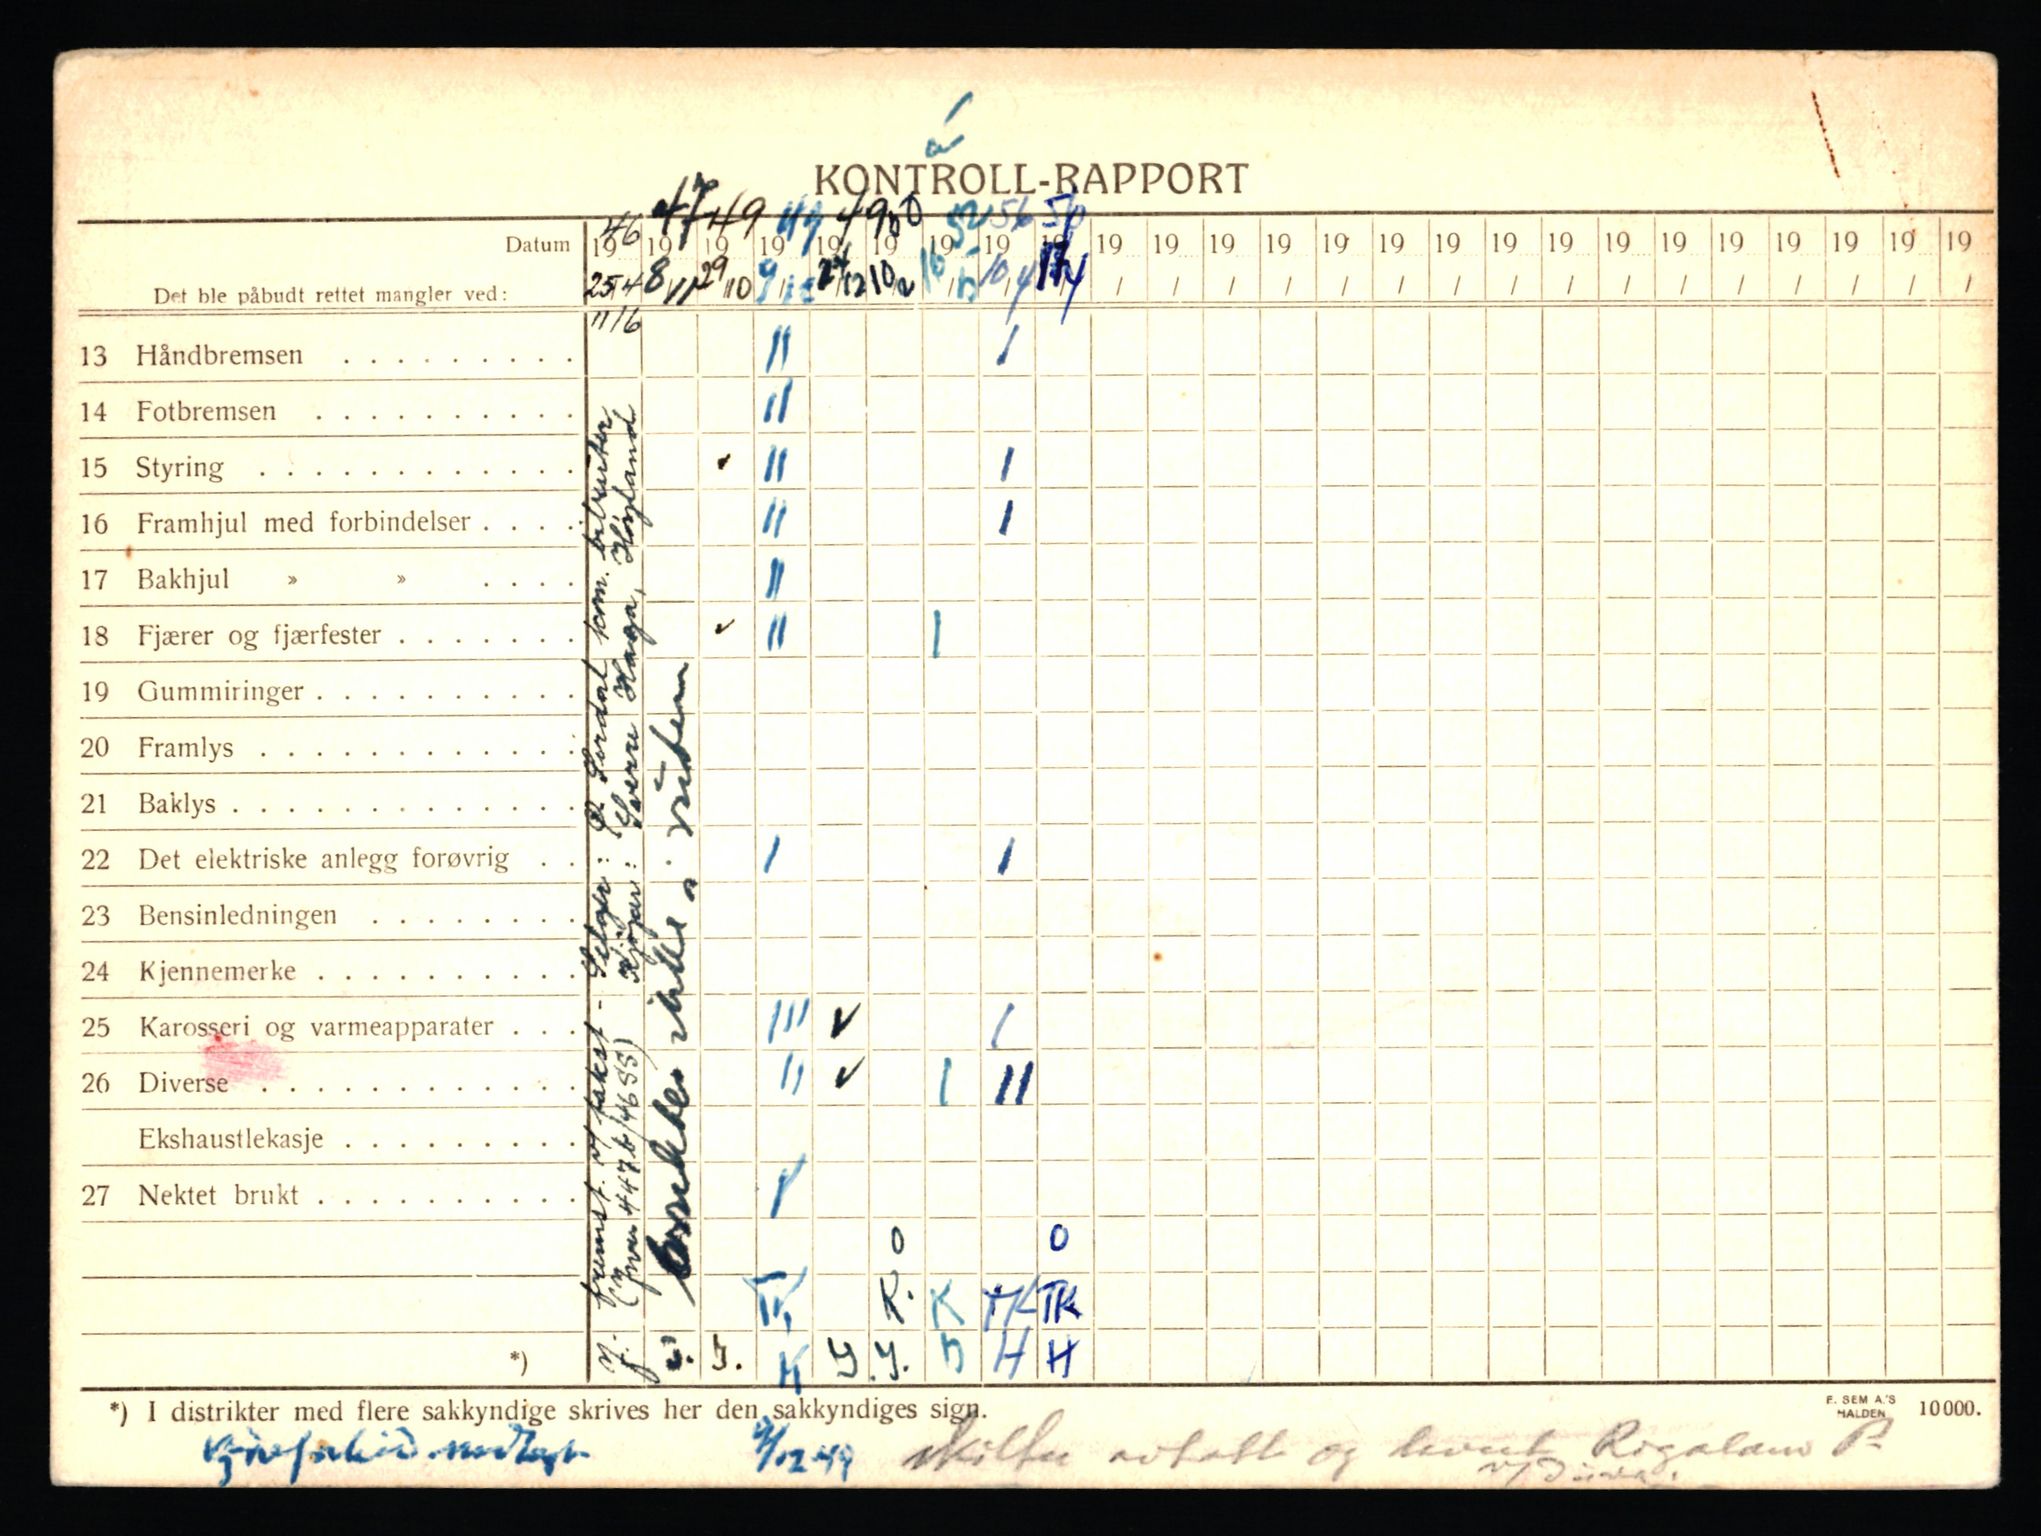 KONTROLL-RAPPORT
46 47 49 49 49 50 52 56 56
Datum 19 19 19 19 19 19 19 19 19 19 19 19 19 19 19 19 19 19 19 19 19 19 19 19 19
Det ble påbudt rettet mangler ved: 25/4 8/11 29/10 9/12 24/12 10/2 16/5 10/4 17/4 / / / / / / / / / / / / / / / /
11/6
13 Håndbremsen . . . . . . . . . II I
14 Fotbremsen . . . . . . . . . . II
15 Styring . . . . . . . . . . . . ✓ II I
16 Framhjul med forbindelser . . . . II I
17 Bakhjul » » . . . . II
18 Fjærer og fjærfester . . . . . . . ✓ II I
19 Gummiringer . . . . . . . . . .
20 Framlys . . . . . . . . . . . .
21 Baklys . . . . . . . . . . . . .
22 Det elektriske anlegg forøvrig . . I I
23 Bensinledningen . . . . . . . .
24 Kjennemerke . . . . . . . . . .
25 Karosseri og varmeapparater . . . III ✓ I
26 Diverse . . . . . . . . . . . . II ✓ I II
Ekshaustlekasje . . . . . . . . .
27 Nektet brukt . . . . . . . . . . I
O O
K. K TK TK
*) J. J. K J. J. H H
fremst. v/ takst - Selger: Sirdal kom. bilruter
Kjøper: Sverre Haga, Höyland
brukes ikke i vinter
*) I distrikter med flere sakkyndige skrives her den sakkyndiges sign.
E. SEM A.'S
HALDEN
10000.
9/12 49 skilter avtatt og levert Rogaland P.